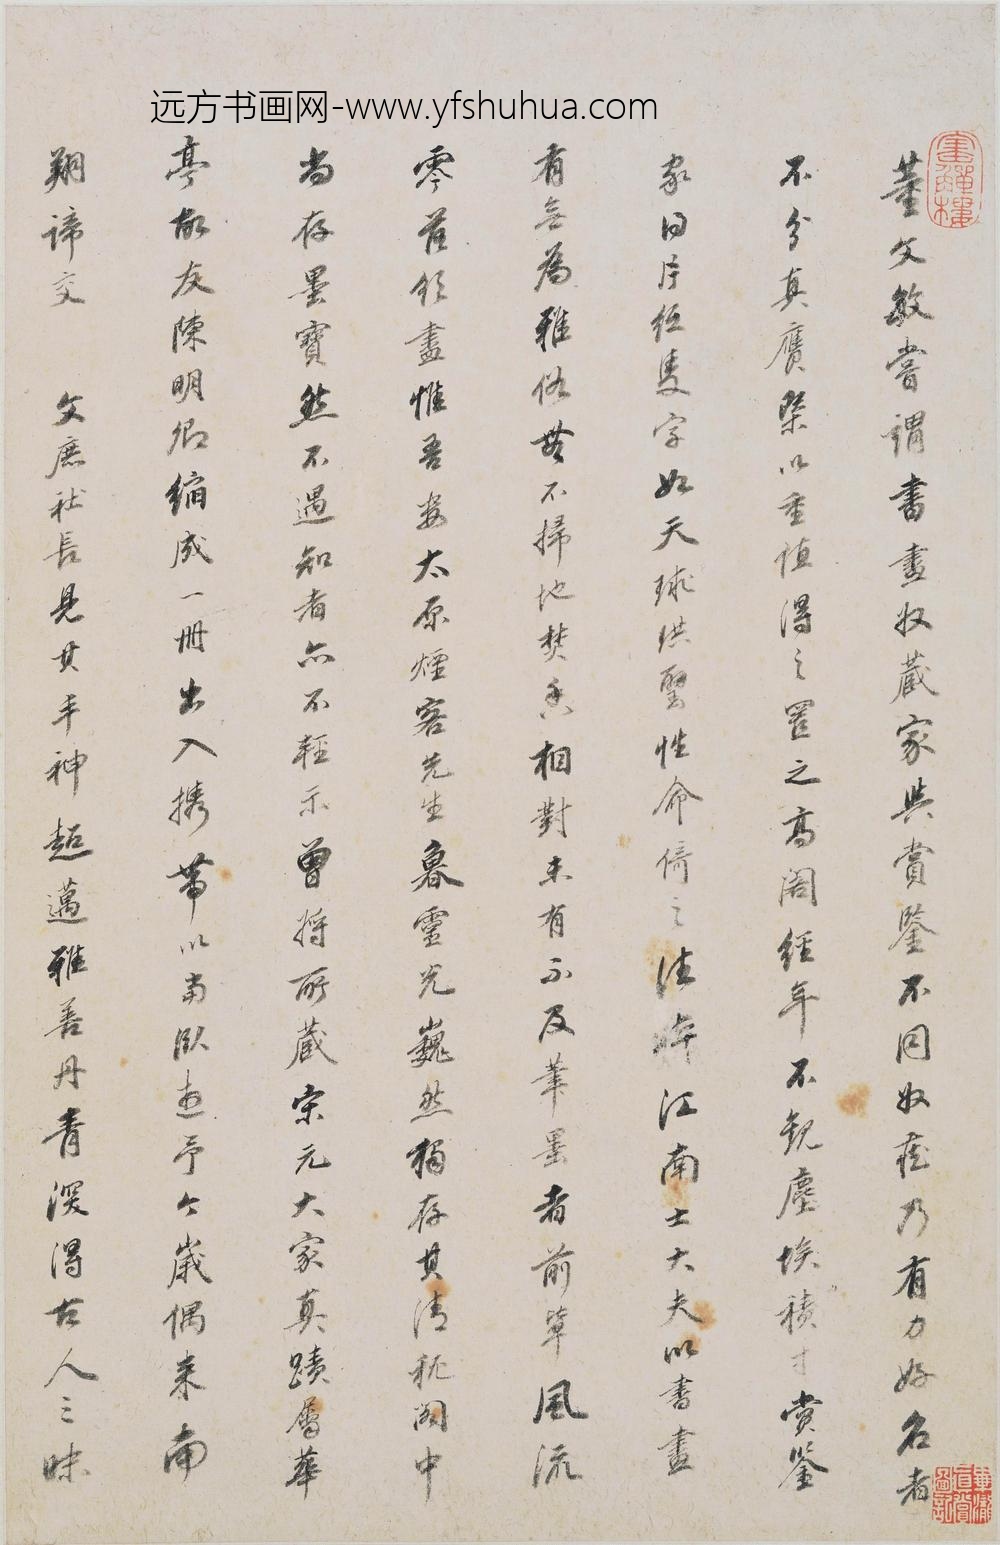 远方书画网-www.yfshuhua.com
董文敏嘗謂書畫收藏家與賞鑒不同收藏乃有力好名者
不分真贋槩以重值得之置之高閣經年不觀塵埃積寸賞鑒
家得片紙隻字如天球洪璧性命倚之法 江南士大夫以書畫
有無為雅俗無不掃地焚香相對未有不及筆墨者前軰風流
零落欲盡惟吾婁太原煙客先生魯靈光巍然獨存其清秘閣中
尚存墨寶然不遇知者亦不輕示曾將所藏宋元大家真蹟屬華
亭故友陳明卿縮成一冊出入携帶以當臥遊予今歲偶来南
翔諦交 文庶社長見其丰神超邁雅善丹青深得古人三昧
畫禪樓
畢瀧審賞圖記